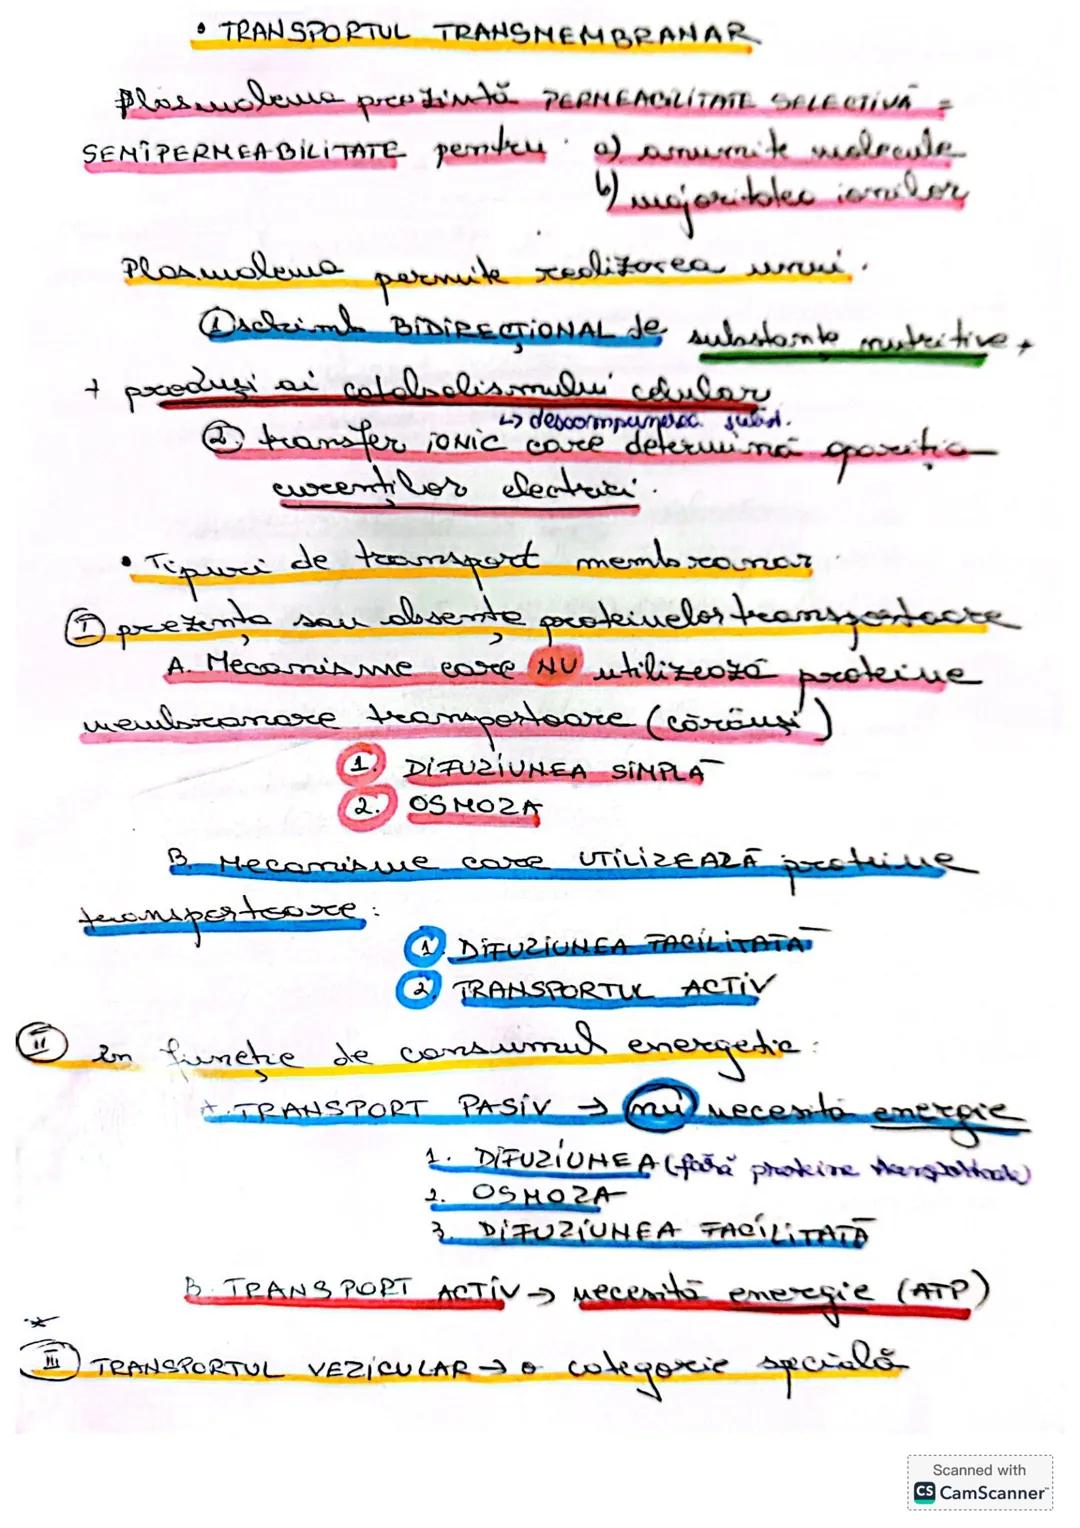 • TRANSPORTUL TRANSMEMBRANAR
Plasmalema prezintă PERMEABILITATE SELECTIVĂ =
SEMIPERMEABILITATE pentru: a) anumite molecule
b) majoritatea ionilor
Plasmalema permite realizarea unui:
① schimb BIDIRECȚIONAL de substanțe nutritive +
+ produși ai catabolismului celular
↳ descompunerea subst.
② transfer IONIC care determină apariția
curenților electrici.
• Tipuri de transport membranar
Ⓘ prezența sau absența proteinelor transportoare
A. Mecanisme care NU utilizează proteine
membranare transportoare (cărăuși)
1. DIFUZIUNEA SIMPLĂ
2. OSMOZA
B. Mecanisme care UTILIZEAZĂ proteine
transportoare:
1. DIFUZIUNEA FACILITATĂ
2. TRANSPORTUL ACTIV
II în funcție de consumul energetic:
A. TRANSPORT PASIV → nu necesită energie
1. DIFUZIUNEA (fără proteine transportoare)
2. OSMOZA
3. DIFUZIUNEA FACILITATĂ
B. TRANSPORT ACTIV → necesită energie (ATP)
*
III TRANSPORTUL VEZICULAR → o categorie specială
Scanned with
CS CamScanner